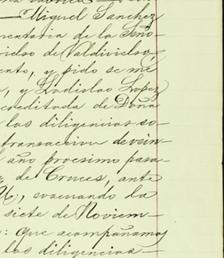 Miguel Sanchez
mentatria de la Seño
ridas de Valdivielso,
ento, y pido se me
, y Ladislao Lopez
creditada de Doña
las diligencias so
transaccion de vein
año procsimo pasa
de Cruces, ante
, evacuando la
siete de Noviem
: Que acompañamos
las diligencias